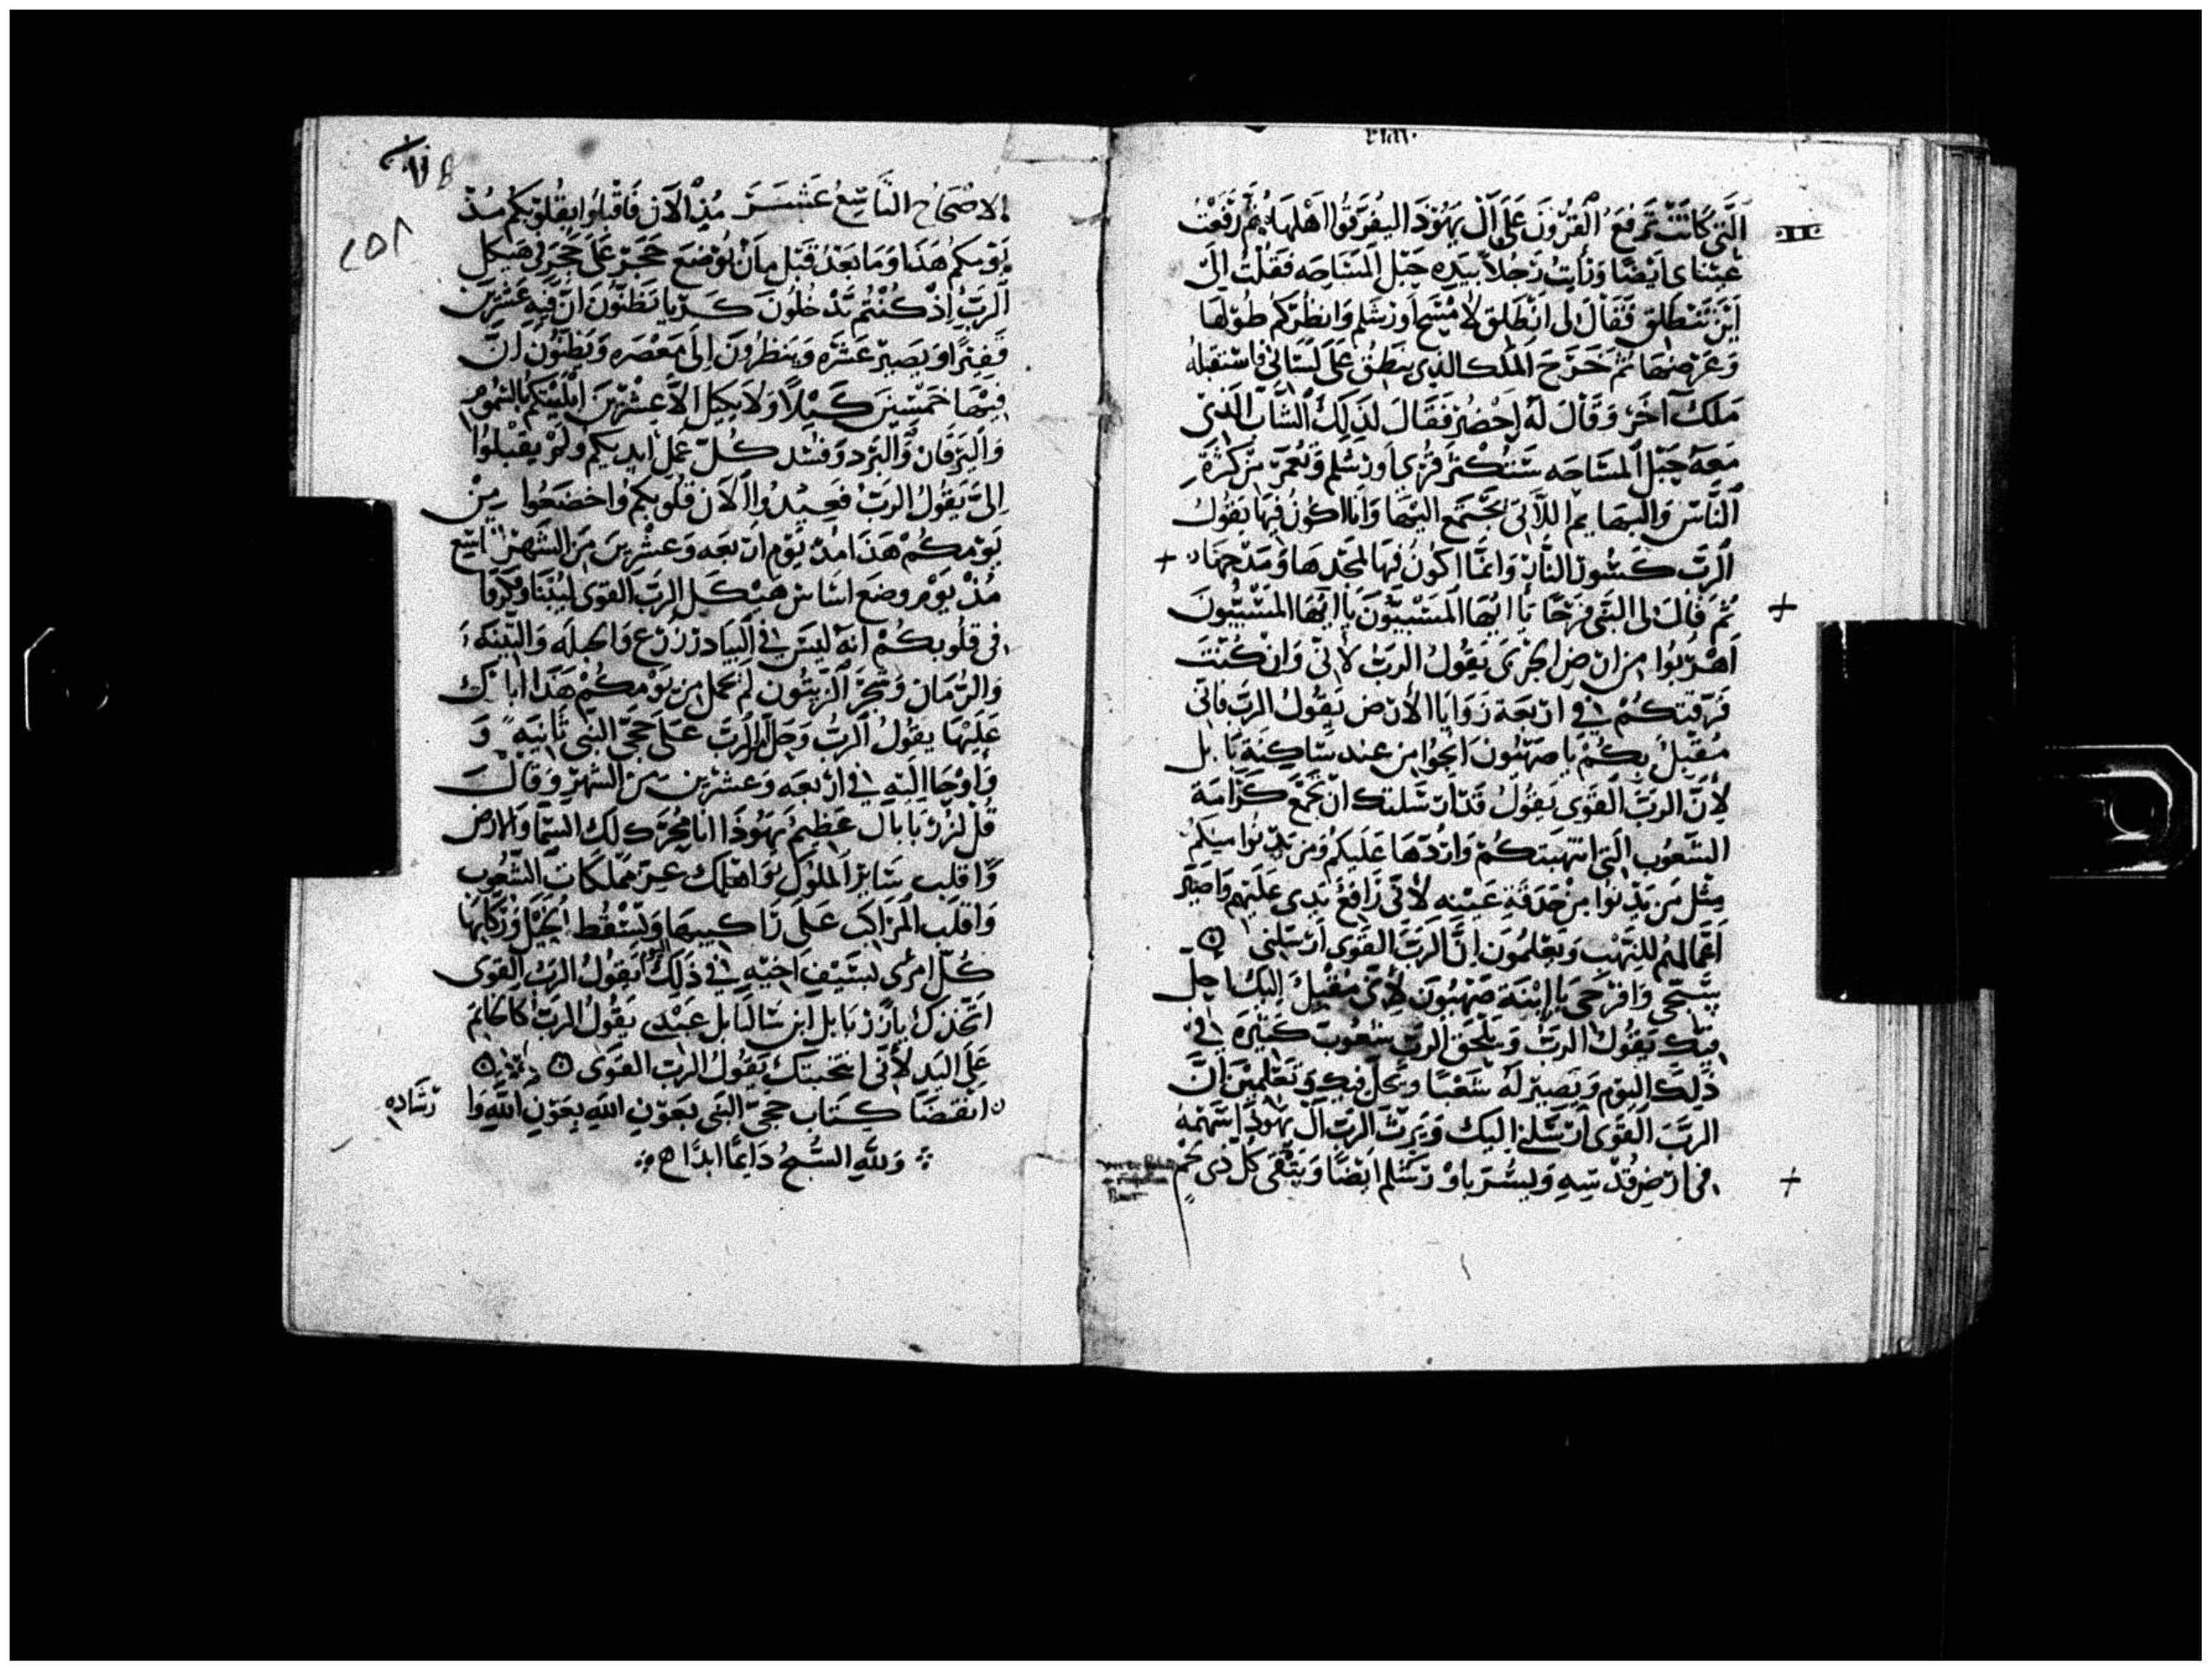 التي كانت ترفع القرون على آل يهوذا ليفرقوا اهلها ثم رفعت
عيناى ايضا ورايت رجلا بيده حبل المساحه فقلت الى
اين تنطلق فقال لى انطلق لامسح اورشلم وانظر كم طولها
وعرضها ثم خرج الملك الذى ينطق على لسانى فاستقبله
ملك آخر وقال له احضر فقال لذلك الشاب الذى
معه حبل المساحه ستكثر قرى اورشلم وتعمر من كثرة
الناس والبهايم اللاتى تجتمع اليها وانا اكون فيها يقول
الرب كسور النار وانما اكون فيها لمجدها ومدحها
ثم قال لى النبى فرحا يا ايها المسبيون يا ايها المسبيون
اهربوا من ارض الجربى يقول الرب لانى وان كنت
فرقتكم في اربعة زوايا الارض يقول الرب فانى
مقبل بكم يا صهيون انجوا من عند ساكنة بابل
لان الرب القوى يقول قد ارسلتك ان تجمع كرامة
الشعوب التى انتهبتكم واردها عليكم ومن يدنوا منكم
مثل من يدنوا من حدقة عينه لانى رافع يدى عليهم واصير
اعمالهم للنهب ويعلمون ان الرب القوى ارسلنى
سبحى وافرحى يا ابنة صهيون لانى مقبل اليك احل
فيك يقول الرب ويلحق الرب شعوب كثيره فى
ذلك اليوم ويصير له شعبا ويحل فيك وتعلمين ان
الرب القوى ارسلنى اليك ويرث الرب آل يهوذا سهمه
فى ارض قدسه ويسر باورشلم ايضا ويتقى كل ذى لحم
٢٥٨
الاصحاح التاسع عشر مذ الآن فاقبلوا بقلوبكم مذ
يومكم هذا وما بعد قبل ان يوضع حجر على حجر فى هيكل
الرب اذ كنتم تدخلون كريا تظنون ان فيه عشرين
قفيزا ويصير عشره وينظرون الى معصره ويظنون ان
فيها خمسين كيلا ولا يكيل الا عشرين ابليتكم بالسموم
واليرقان والبرد وفسد كل عمل ايديكم ولم يقبلوا
الى يقول الرب فعيدوا الان قلوبكم واخضعوا من
يومكم هذا مذ يوم اربعه وعشرين من الشهر التاسع
مذ يوم وضع اساس هيكل الرب القوى
فى قلوبكم انه ليس في البيادر زرع والحبله والتينه
والرمان وشجر الزيتون لم تحمل من يومكم هذا ابارك
عليها يقول الرب وحل الرب على حجى النبى ثانيه و
واوحا اليه في اربعه وعشرين من الشهر وقال
قل لزربابال عظيم يهوذا انا محرك لك السما والارض
واقلب ساير الملوك واهلك عز مملكات الشعوب
واقلب المراكب على راكبيها ويسقط الخيل وركابها
كل امرى بسيف اخيه في ذلك يقول الرب القوى
اتخذك يا زربابل ابن شالتابل عبدى يقول الرب كالخاتم
على اليد لانى انتخبتك يقول الرب القوى
انقضا كتاب حجى النبى بعون الله بعون الله وا
رشاده
ولله السبح دايما ابدا